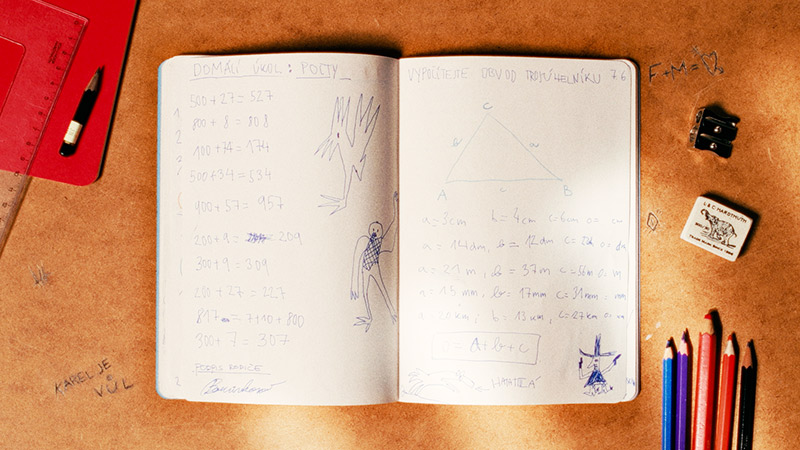 DOMÁCÍ ÚKOL: POČTY
500 + 27 = 527
800 + 8 = 808
100 + 74 = 174
500 + 34 = 534
900 + 57 = 957
200 + 9 = 209
300 + 9 = 309
200 + 27 = 227
817 = 7+10+800
300 + 7 = 307
PODPIS RODIČE
VYPOČÍTEJTE OBVOD TROJÚHELNÍKU 76
C
b a
A c B
a = 3cm b = 4cm c = 6cm o = cm
a = 14dm, b = 12dm c = dm
a = 21 m, b = 37 m c = 36m o = m
a = 15 mm, b = 17mm c = 31mm = mm
a = 20 km, b = 13 km, c = 27 km o = m
= A + b + c
F + M =
L & C HARDTMUTH
KAREL JE
VŮL